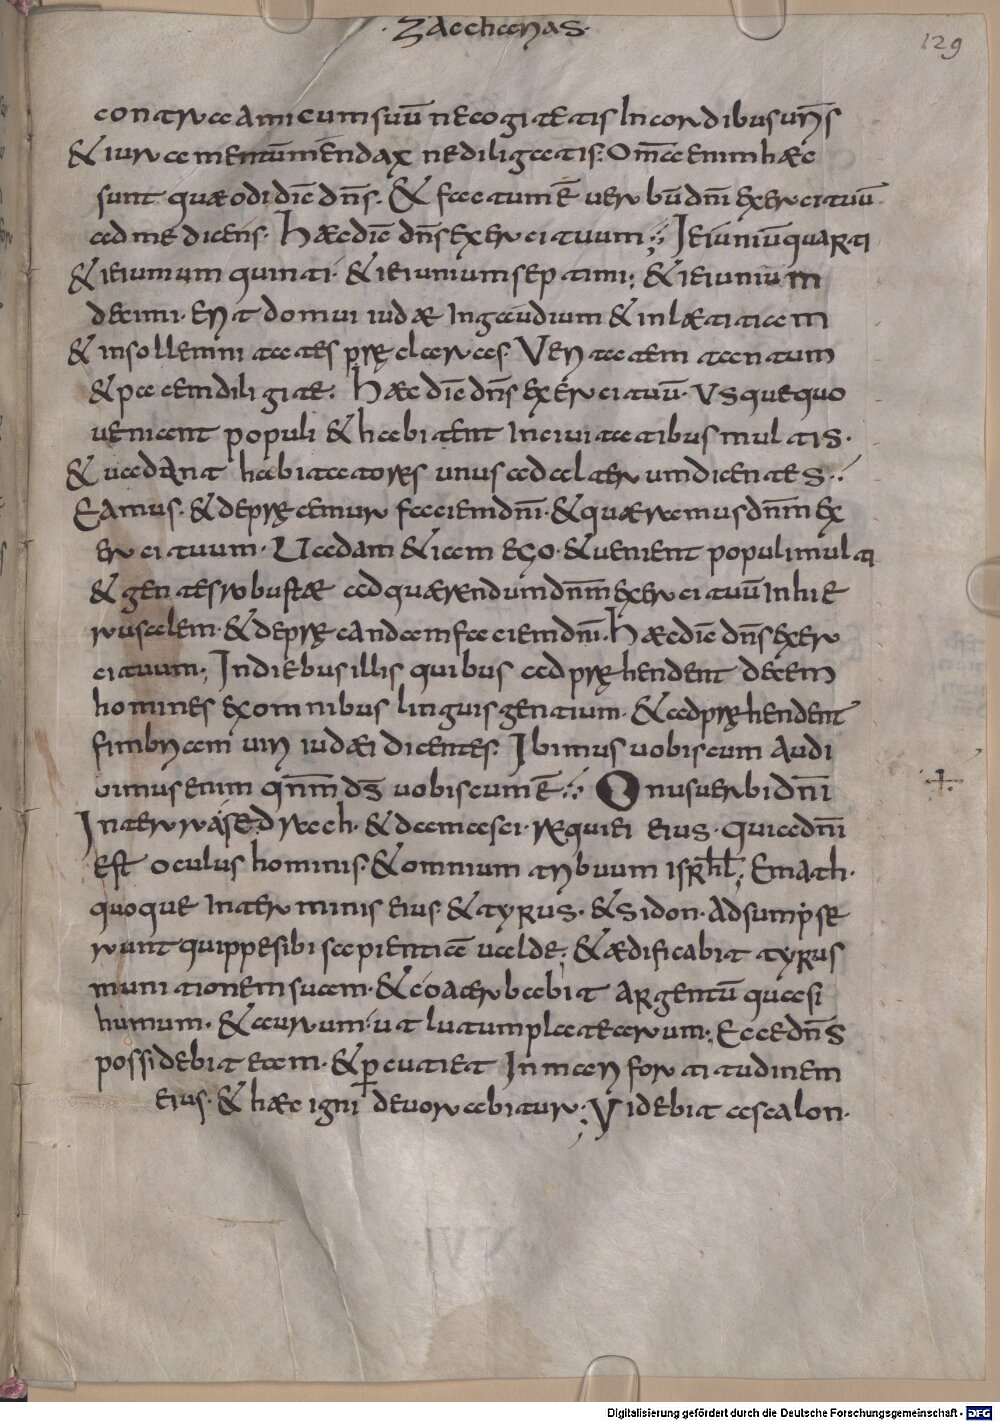 · Zacharias ·
129
contra amicum suū ne cogitetis In cordibus ur̄s
& iuramentum mendax ne diligatis: Om̄a enim haec
sunt quae odi dic̄ dn̄s. & factum ē uerbū dn̄i exercituū
ad me dicens. Haec dic̄ dn̄s exercituum; Ieiuniū quarti
& ieiunium quinti. & ieiunium septimi; & ieiunium
decimi. erit domui iudae In gaudium & in laetiticam
& in sollemnitates pręclaras. Veritatem tantum
& pacem diligite. Haec dic̄ dn̄s exercituū. Vsquequo
ueniant populi & habitent In ciuitatibus multis.
& uadant habitatores unus ad alterum dicentes:
Eamus. & depręcemur faciem dn̄i. & quaeramus dn̄m ex
ercituum. Uadam & iam ego. & uenient populi multi
& gentes robustae ad quaerendum dn̄m exercituū In hie
rusalem. & depręcandam faciem dn̄i. Haec dic̄ dn̄s exer
cituum; In diebus illis quibus adpręhendent decem
homines ex omnibus linguis gentium. & adpręhendent
fimbriam uiri iudaei dicentes. Ibimus uobiscum audi
uimus enim qn̄m ds̄ uobiscum ē: Onus uerbi dn̄i
In terra sedrach. & damasci. requiei eius. quia dn̄i
est oculus hominis. & omnium tribuum isrl̄; Emath.
quoque In terminis eius. & tyrus. & sidon. adsumpse
runt quippe sibi sapientiā ualde; & aedificabit tyrus
munitionem suam. & coaceruabit argentū quasi
humum. & aurum. ut lutum platearum; Ecce dn̄s
possidebit eam. & pcutiet In mari fortitudinem
eius. & haec igni deuorabitur; Videbit ascalon.
Digitalisierung gefördert durch die Deutsche Forschungsgemeinschaft - DFG